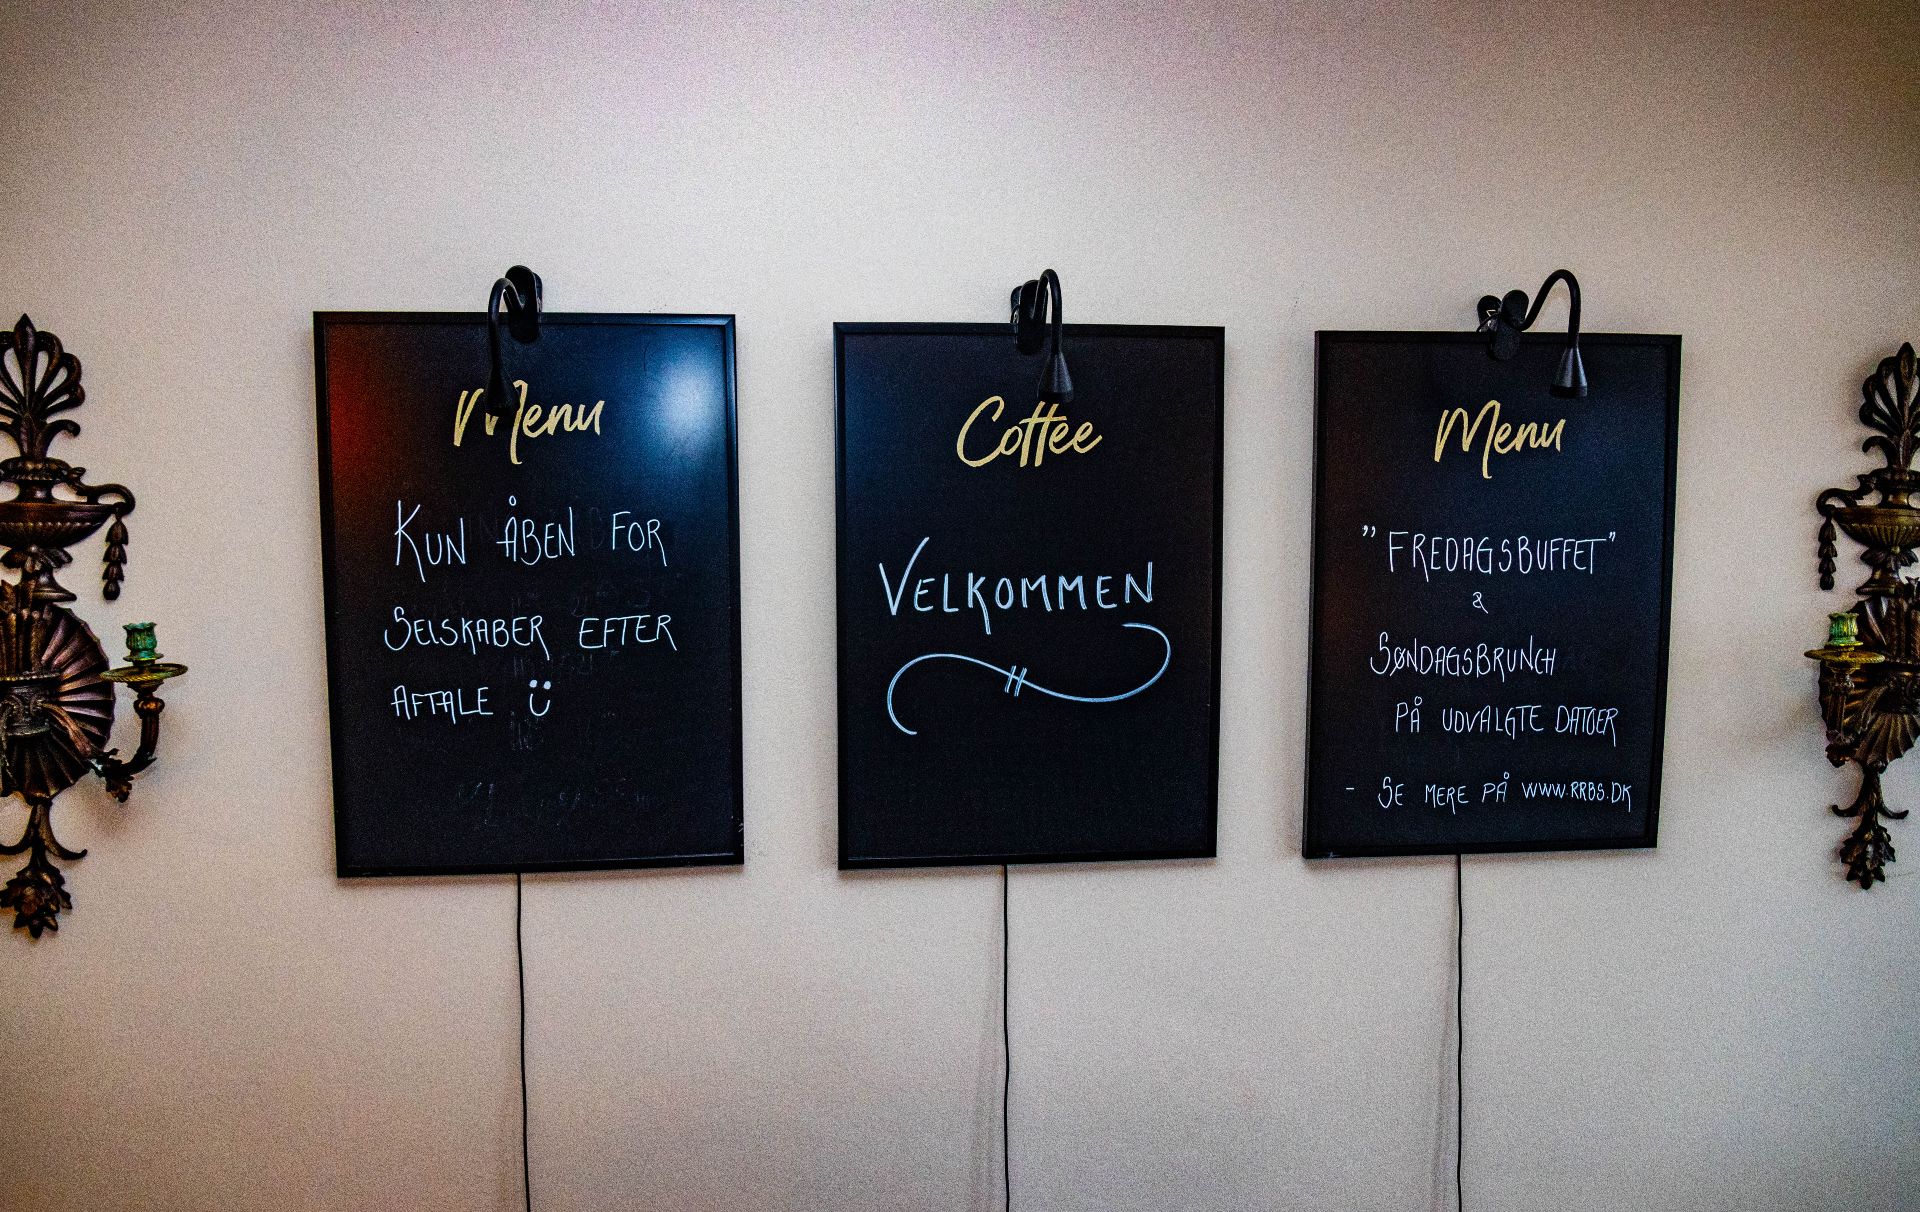 Menu
KUN ÅBEN FOR
SELSKABER EFTER
AFTALE Ü
Coffee
VELKOMMEN
Menu
"FREDAGSBUFFET"
&
SØNDAGSBRUNCH
PÅ UDVALGTE DATOER
- SE MERE PÅ WWW.RRBS.DK